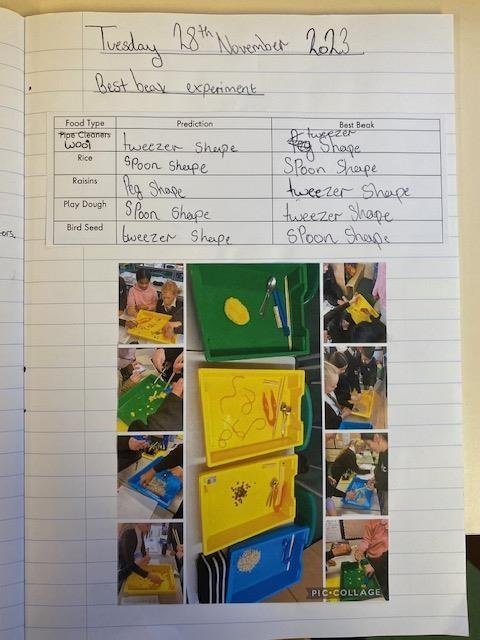 Tuesday 28th November 2023
Best beak experiment
Food Type Prediction Best Beak
Pipe Cleaners
wool tweezer Shape tweezer Peg Shape
Rice Spoon Shape Spoon Shape
Raisins Peg Shape tweezer Shape
Play Dough Spoon Shape tweezer Shape
Bird Seed tweezer Shape Spoon Shape
PIC•COLLAGE